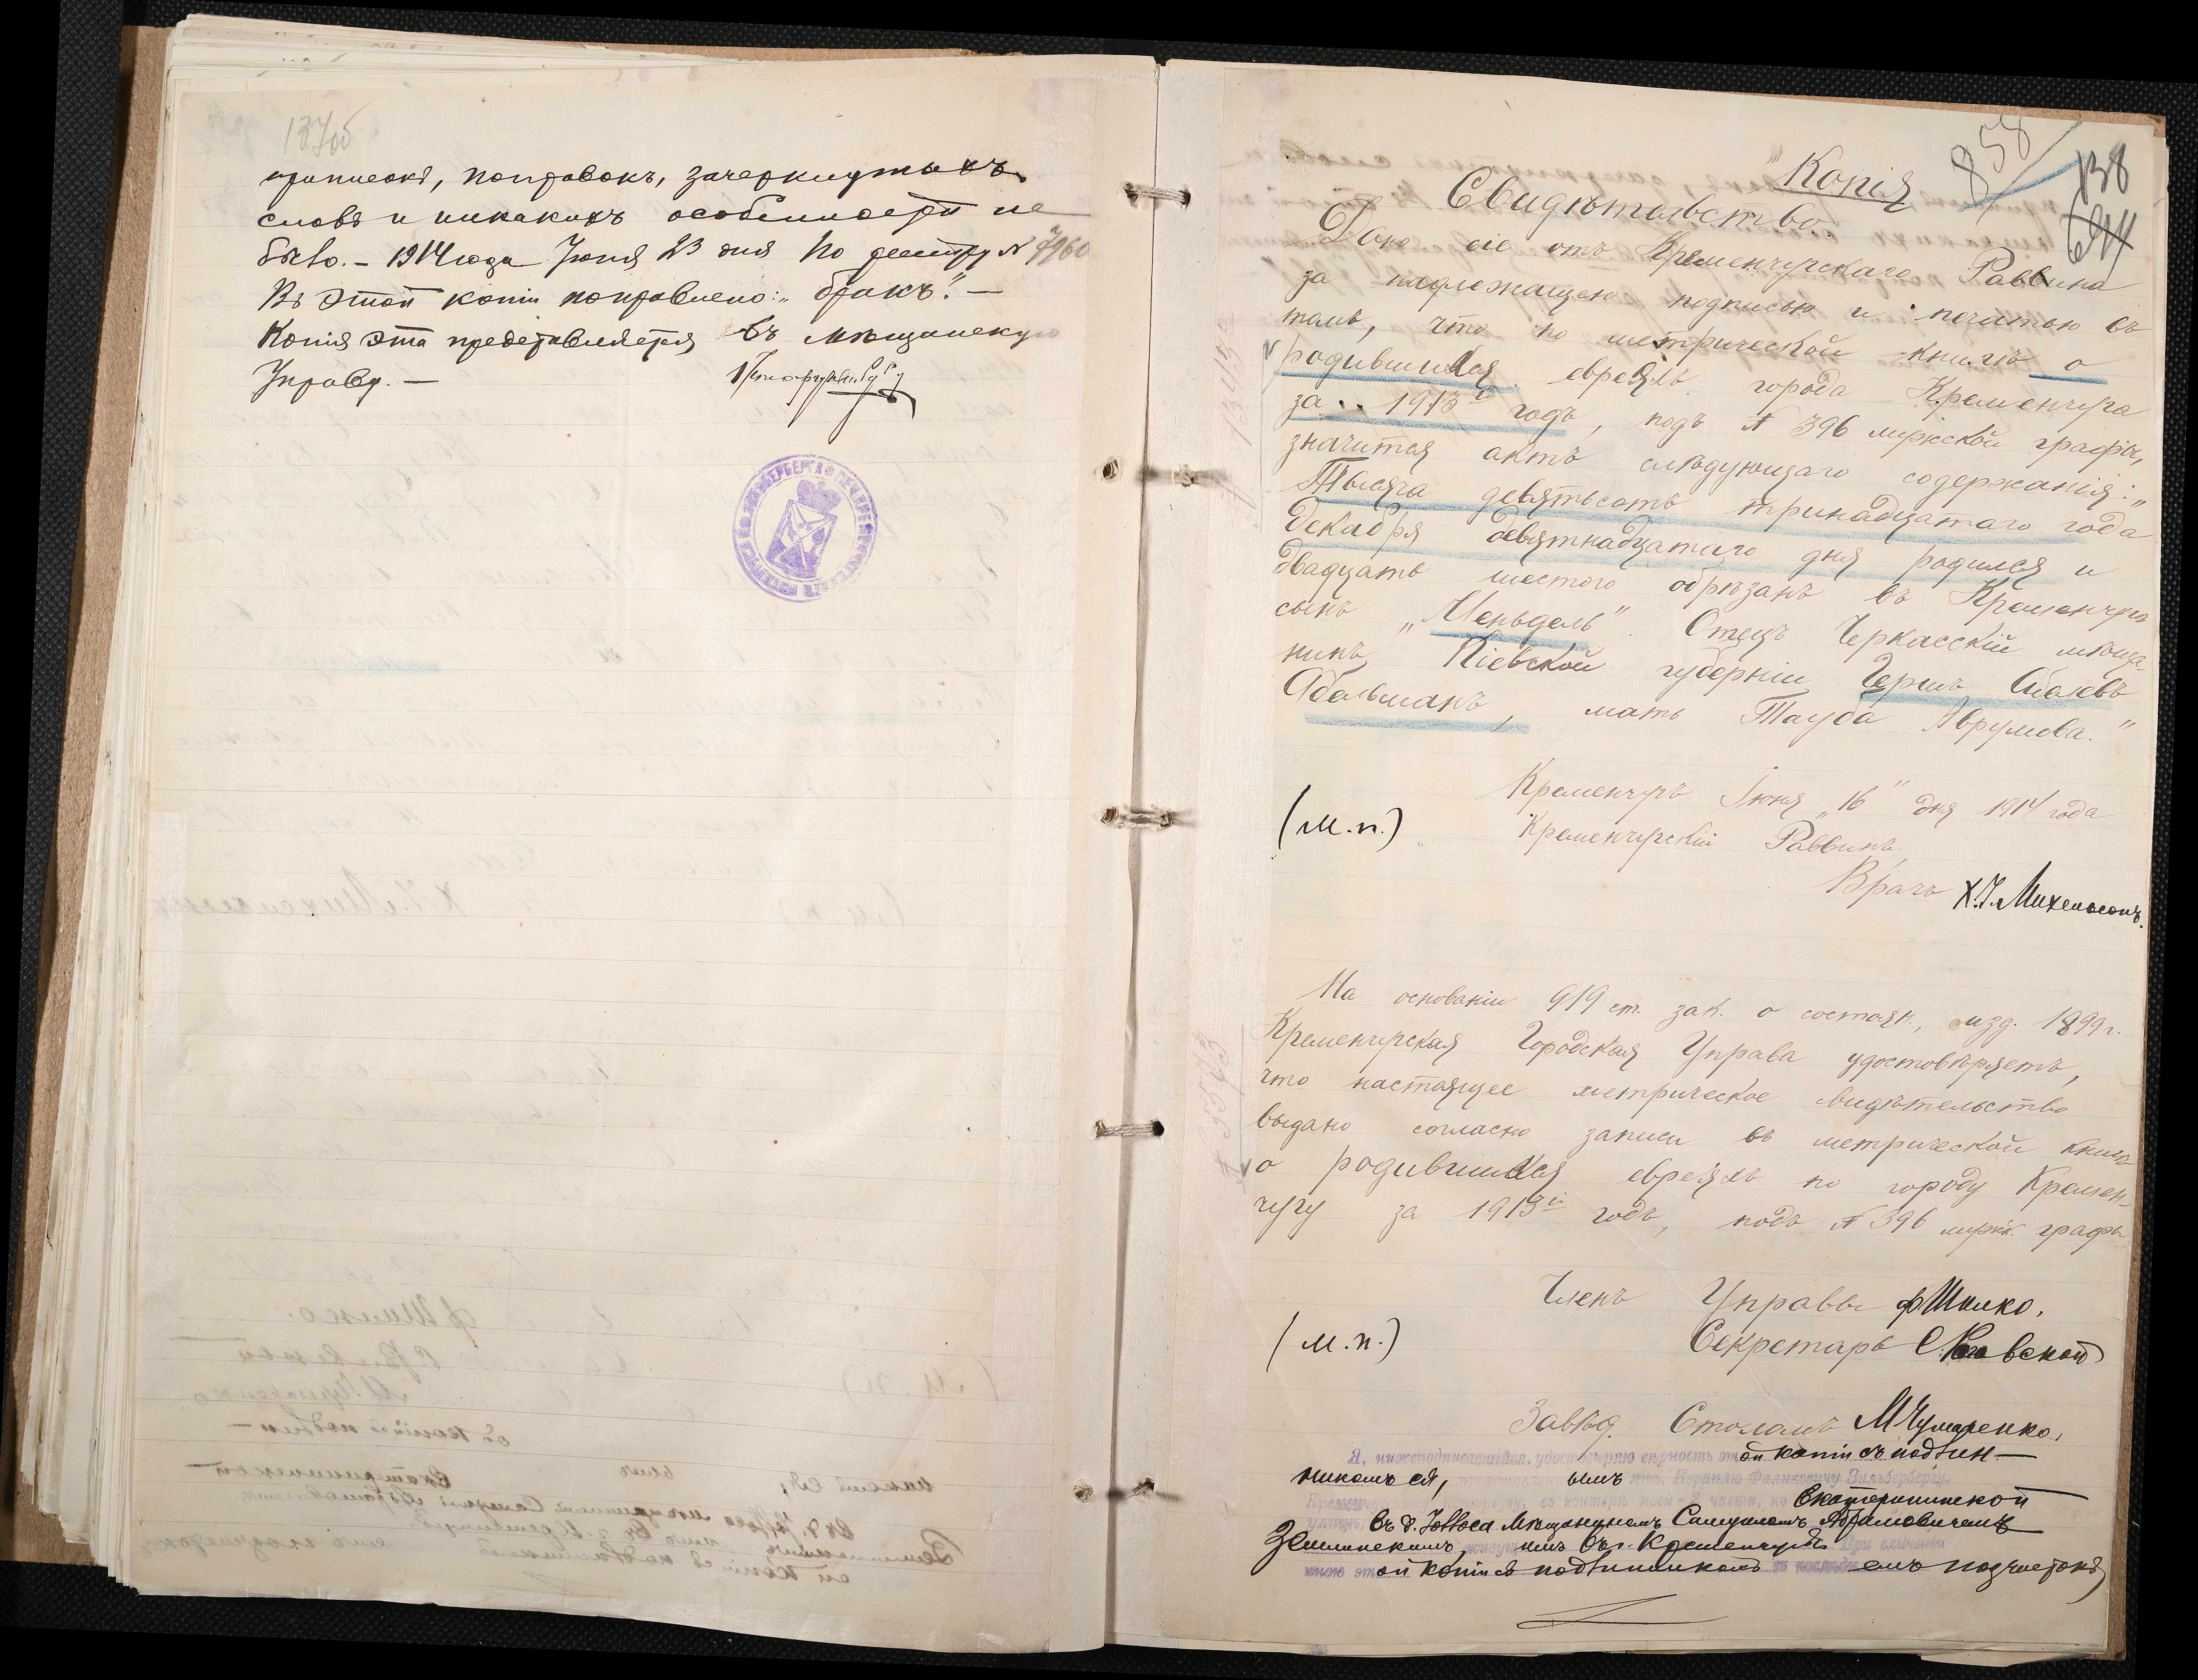 137об
приписокъ, поправокъ, зачеркнутыхъ
словъ и никакихъ особенностей не
было. — 1914 года Іюня 23 дня По реестру № 7960
Въ этой копіи поправлено: „бракъ". —
Копія эта представляется въ Мѣщанскую
Управу. —
858
138
Копія
Свидѣтельство
Дано сіе отъ Кременчугскаго Раввина
за надлежащею подписью и печатью въ
томъ, что по метрической книгѣ о
родившихся евреяхъ города Кременчуга
за 1913й годъ, подъ № 396 мужской графы,
значится актъ слѣдующаго содержанія: „
Тысяча девятьсотъ тринадцатаго года
Декабря девятнадцатаго дня родился и
двадцать шестого обрѣзанъ въ Кременчугѣ
сынъ „Меньдель". Отецъ Черкасскій мѣща-
нинъ Кіевской губерніи Гершъ Абелевъ
Абельманъ, мать Тауба Аврумова."
Кременчугъ Іюня „16" дня 1914 года
(М.п.) Кременчугскій Раввинъ
Врачъ Х.І. Михельсонъ.
На основаніи 919 ст. зак. о состоян., изд. 1899 г.
Кременчугская Городская Управа удостовѣряетъ,
что настоящее метрическое свидѣтельство
выдано согласно записи въ метрической книгѣ
о родившихся евреяхъ по городу Кремен-
чугу за 1913й годъ, подъ № 396 мужск. графы
Членъ Управы Ф Шилко,
(М.п.) Секретарь
Завѣд. Столомъ М Чумаренко,
Я, нижеподписавшійся, удостовѣряю вѣрность этой копіи съ подлин-
никомъ ея, ымъ Фаликовичу Зильбербергу,
Екатерининской
въ д. Іоффеса Мѣщаниномъ Самуиломъ Абрамовичемъ
Землинскимъ, живущимъ въ г. Кременчугѣ При сличеніи
мною этой копіи съ подлинникомъ въ послѣднемъ подчистокъ,